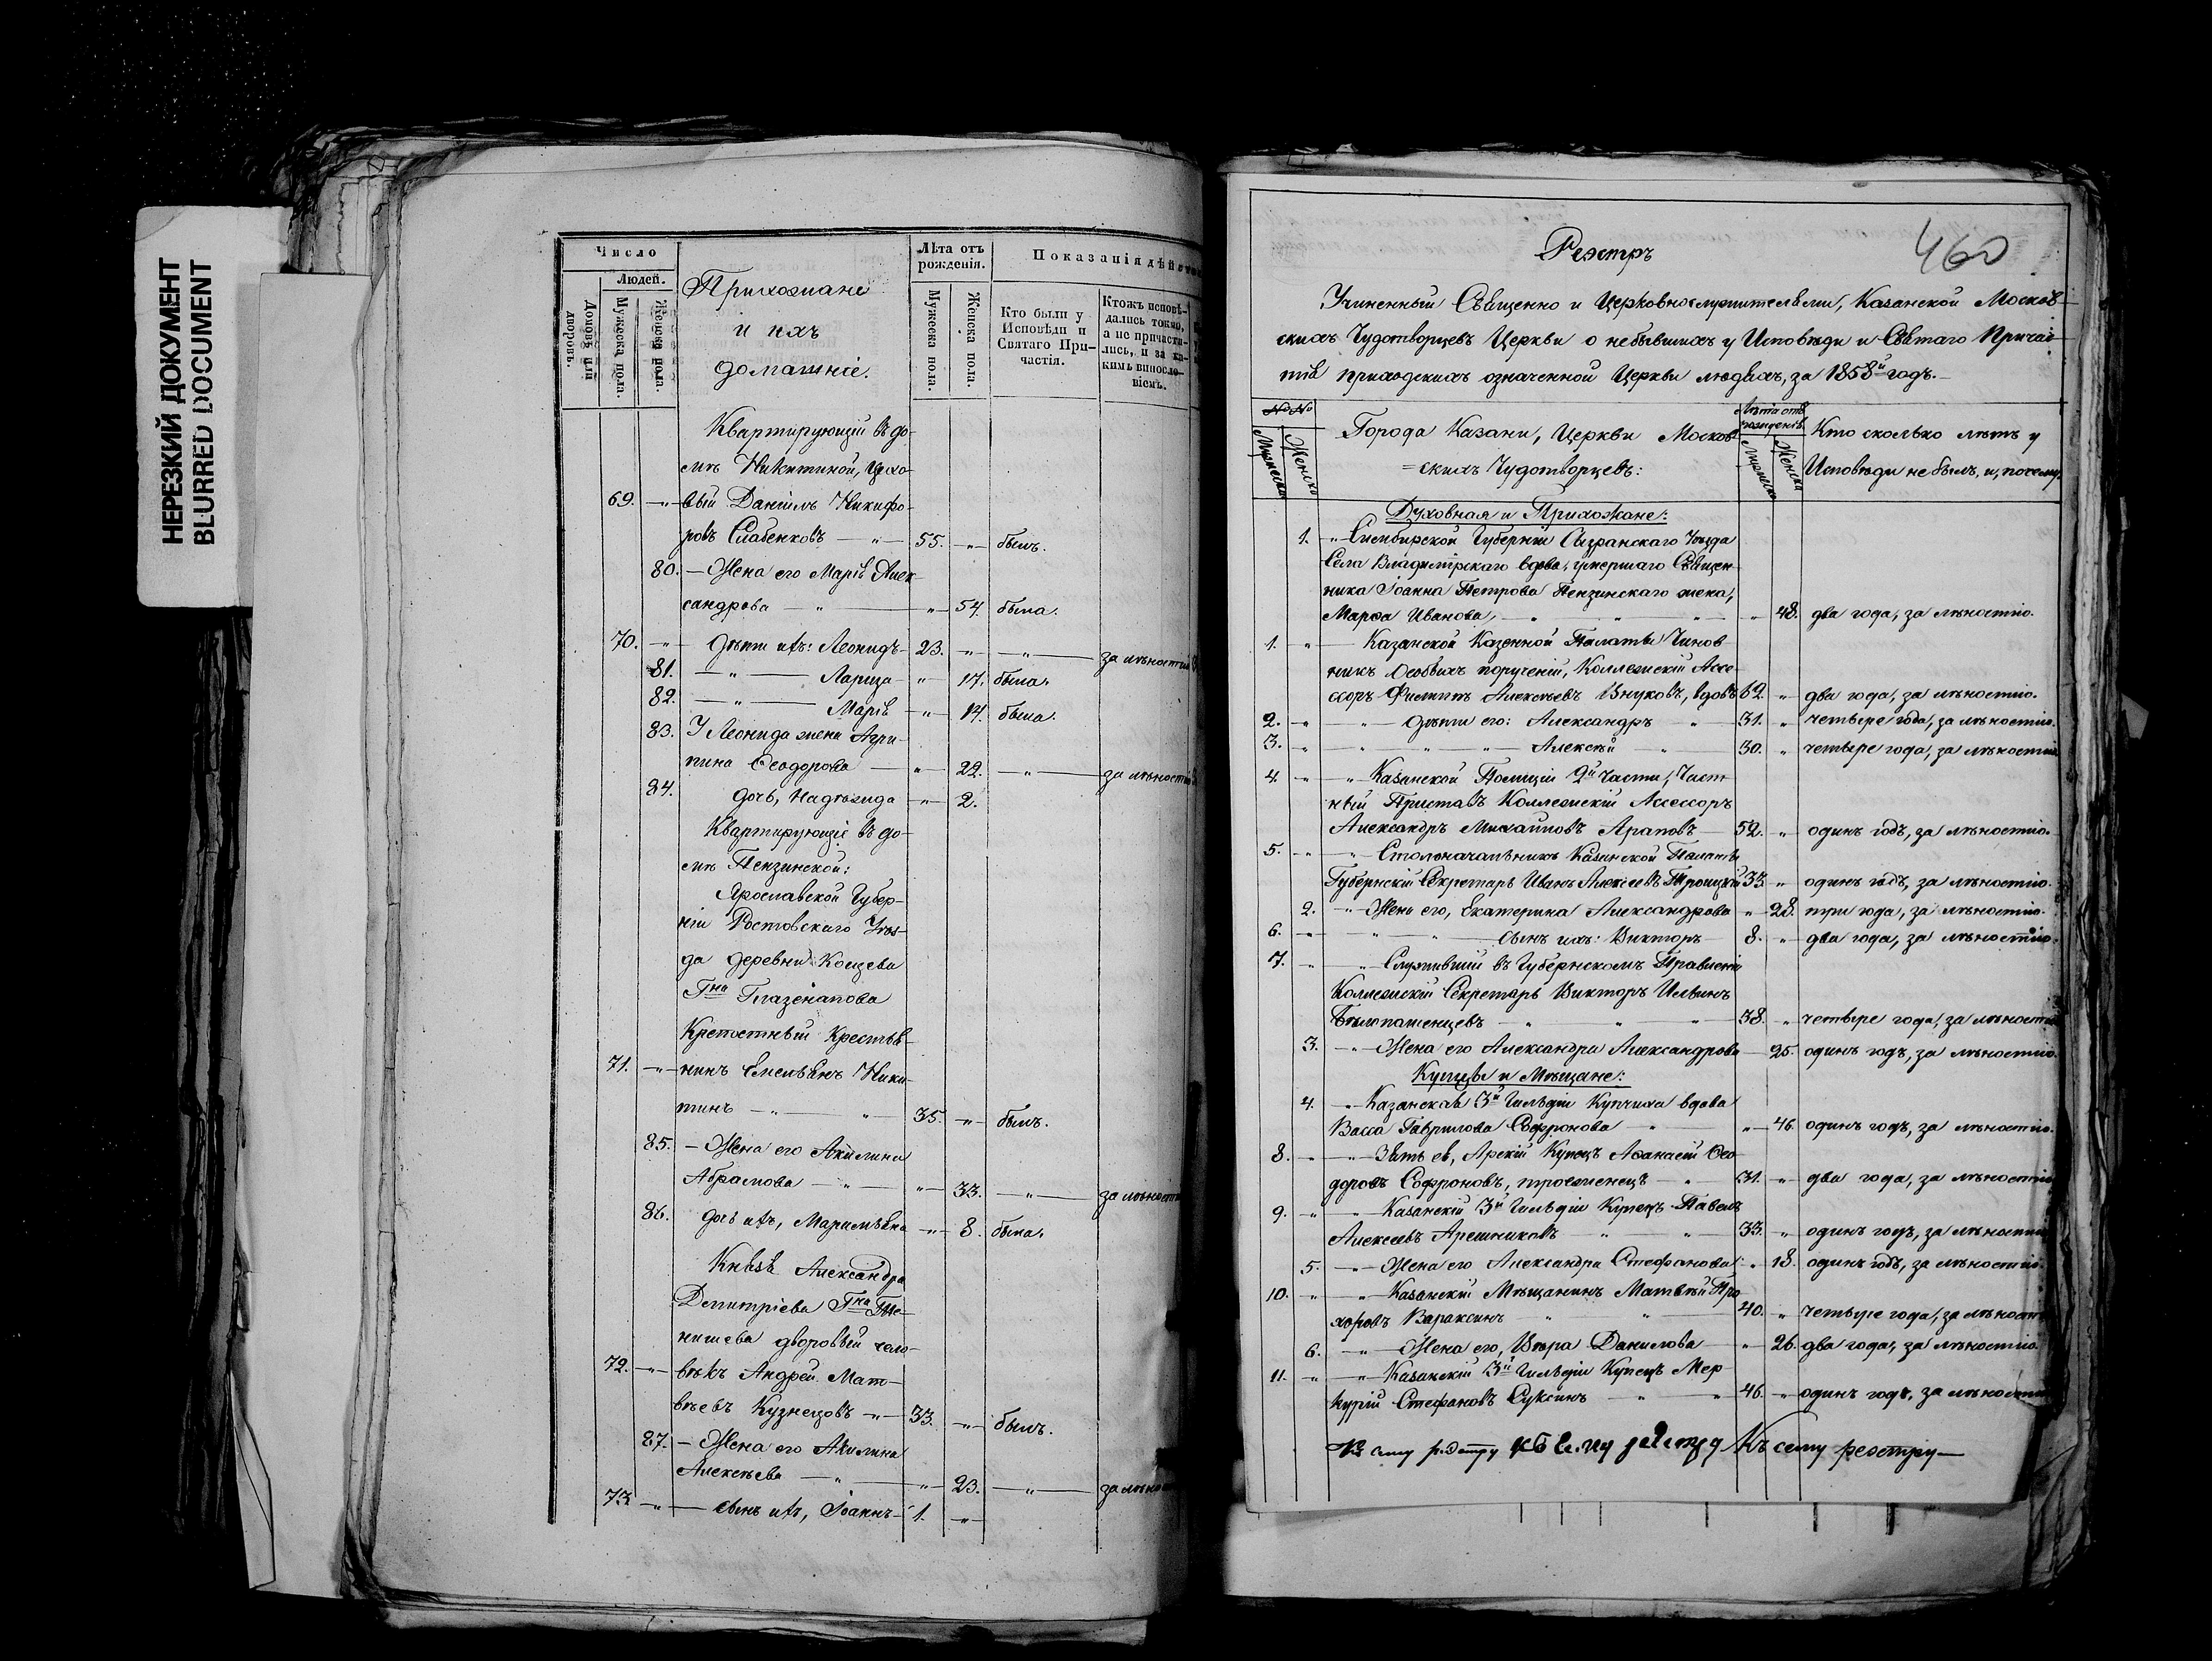 НЕРЕЗКИЙ ДОКУМЕНТ
BLURRED DOCUMENT
Число
Людей.
Домовъ или дворовъ.
Мужеска пола.
Женска пола.
Прихожане
и ихъ
домашніе.
Лѣта отъ рожденія.
Мужеска пола.
Женска пола.
Показанія дѣйств
Кто были у Исповѣди и Святаго Причастія.
Ктожъ исповѣдались токмо, а не причастились, и за какимъ винословіемъ.
Квартирующій въ до-
мѣ Никитиной, Цехо-
69. -"- вый Даніилъ Никифо-
ровъ Слабенковъ -"- 55. -"- былъ.
80. - Жена его Марія Алек-
сандрова -"- -"- 54. была.
70. -"- дѣти ихъ: Леонидъ 23. -"- -"- за лѣностію
81. -"- Лариса -"- 17. была.
82. -"- Марія -"- 14. была.
83. У Леонида жена Агри-
пина Ѳеодорова -"- 22. -"- за лѣностію
84. дочь, Надежда -"- 2.
Квартирующіе въ до-
мѣ Пензинской:
Ярославской Губер-
ніи Ростовскаго Уѣз-
да деревни
Г-на Глазенапова
Крепостный Крестья-
71. -"- нинъ Емельянъ Ники-
тинъ -"- -"- 35. -"- былъ.
85. - Жена его Акилина
Абрамова -"- -"- 33. -"- за лѣность
86. дочь ихъ, Маримьяна -"- 8. была.
Князя Александра
Димитріева Г-на Те-
нишева дворовый чело-
72. -"- вѣкъ Андрей Мат-
вѣевъ Кузнецовъ -"- 33. -"- былъ.
87. - Жена его Акилина
Алексѣева -"- -"- 23. -"- за лѣно
73. -"- сынъ ихъ, Іоаннъ 1. -"-
460
Реэстръ
Учиненный Священно и Церковнослужителями, Казанской Москов-
скихъ Чудотворцевъ Церкви о небывшихъ у Исповѣди и Святаго Причас-
тія приходскихъ означенной Церкви людяхъ, за 1858й годъ.
№ №
Мужеска
Женска
Города Казани, Церкви Москов-
=скихъ Чудотворцевъ:
Лѣта отъ рожденія
Мужеска
Женска
Кто сколько лѣтъ у
Исповѣди не былъ, и, почему.
Духовная и Прихожане:
1. -"- Симбирской Губерніи Сызранскаго Уѣзда
Села Владимірскаго вдова, умершаго Священ-
ника Іоанна Петрова Пензинскаго жена,
Марѳа Иванова, -"- " 48. два года, за лѣностію.
1. " Казанской Казенной Палаты Чинов-
никъ Особыхъ порученій, Коллежскій Ассе-
ссоръ Филиппъ Алексѣевъ Внуковъ, вдовъ 62. " два года, за лѣностію.
2. -"- дѣти его: Александръ " 31. " четыре года, за лѣностію.
3. " " " Алексѣй " 30. " четыре года, за лѣностію
4. -"- Казанской Полиціи 2й Части, Част-
ный Приставъ Коллежскій Ассессоръ
Александръ Михайловъ Араповъ 52. " одинъ годъ, за лѣностію.
5. -"- Столоначальникъ Казанской Палаты
Губернскій Секретарь Иванъ Алексѣевъ Троицкій 33 " одинъ годъ, за лѣностію.
2. -"- Жена его, Екатерина Александрова " 28. три года, за лѣностію.
6. " " " сынъ ихъ: Викторъ 8. " два года, за лѣностію.
7. -"- Служившій въ Губернскомъ Правленіи
Коллежскій Секретарь Викторъ Ильинъ
Бѣлопашенцевъ " " " 38. " четыре года, за лѣностію
3. -"- Жена его Александра Александрова 25. одинъ годъ, за лѣностію.
Купцы и Мѣщане:
4. -"- Казанская 3й Гильдіи Купчиха вдова
Васса Гаврилова Софронова " " 46. одинъ годъ, за лѣностію.
8. -"- Зять ея, Арскій Купецъ Аѳанасій Ѳео-
доровъ Софроновъ, троеженецъ " 31. " два года, за лѣностію
9. -"- Казанскій 3й Гильдіи Купецъ Павелъ
Алексеевъ Арешниковъ " " 33. " одинъ годъ, за лѣностію
5. -"- Жена его Александра Стефанова " 18. одинъ годъ, за лѣностію.
10. -"- Казанскій Мѣщанинъ Матвѣй Про-
хоровъ Вараксинъ " " 40. " четыре года, за лѣность
6. -"- Жена его, Вѣра Данилова " 26. два года, за лѣностію.
11. -"- Казанскій 3й Гильдіи Купецъ Мер-
курій Стефановъ Суксинъ " " 46. " одинъ годъ, за лѣностію
Къ сему реэстру къ сему реестру Къ сему реэстру